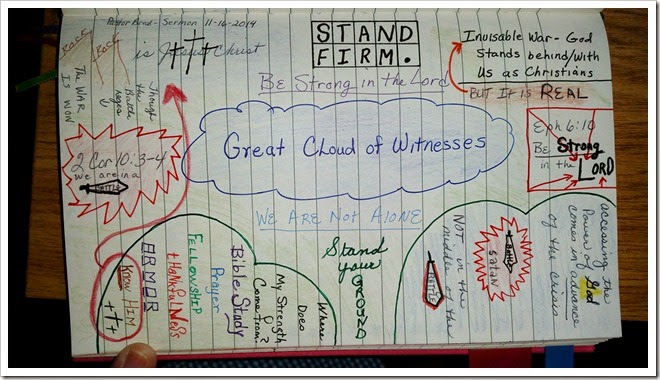 Pastor Brad - Sermon 11-16-2014
Rock
Rock
is Jesus Christ
STAND
FIRM.
Be Strong in the Lord
Invisable War - God
Stands behind/with
Us as Christians
BUT IT IS REAL
The WAR
IS WON
Though
the
Battle
Great Cloud of Witnesses
Eph 6:10
BE Strong
in the LORD
2 Cor 10:3-4
we are in a
BATTLE
WE ARE NOT ALONE
Know HIM
ARMOR
thankfulness
FELLOWSHIP
Prayer
Bible Study
Where
Does
My Strength
Come from?
Stand
your
GROUND
NOT in the
middle of the
BATTLE
BATTLE
Satan
accessing the
Power of God
comes in advance
of the crisis